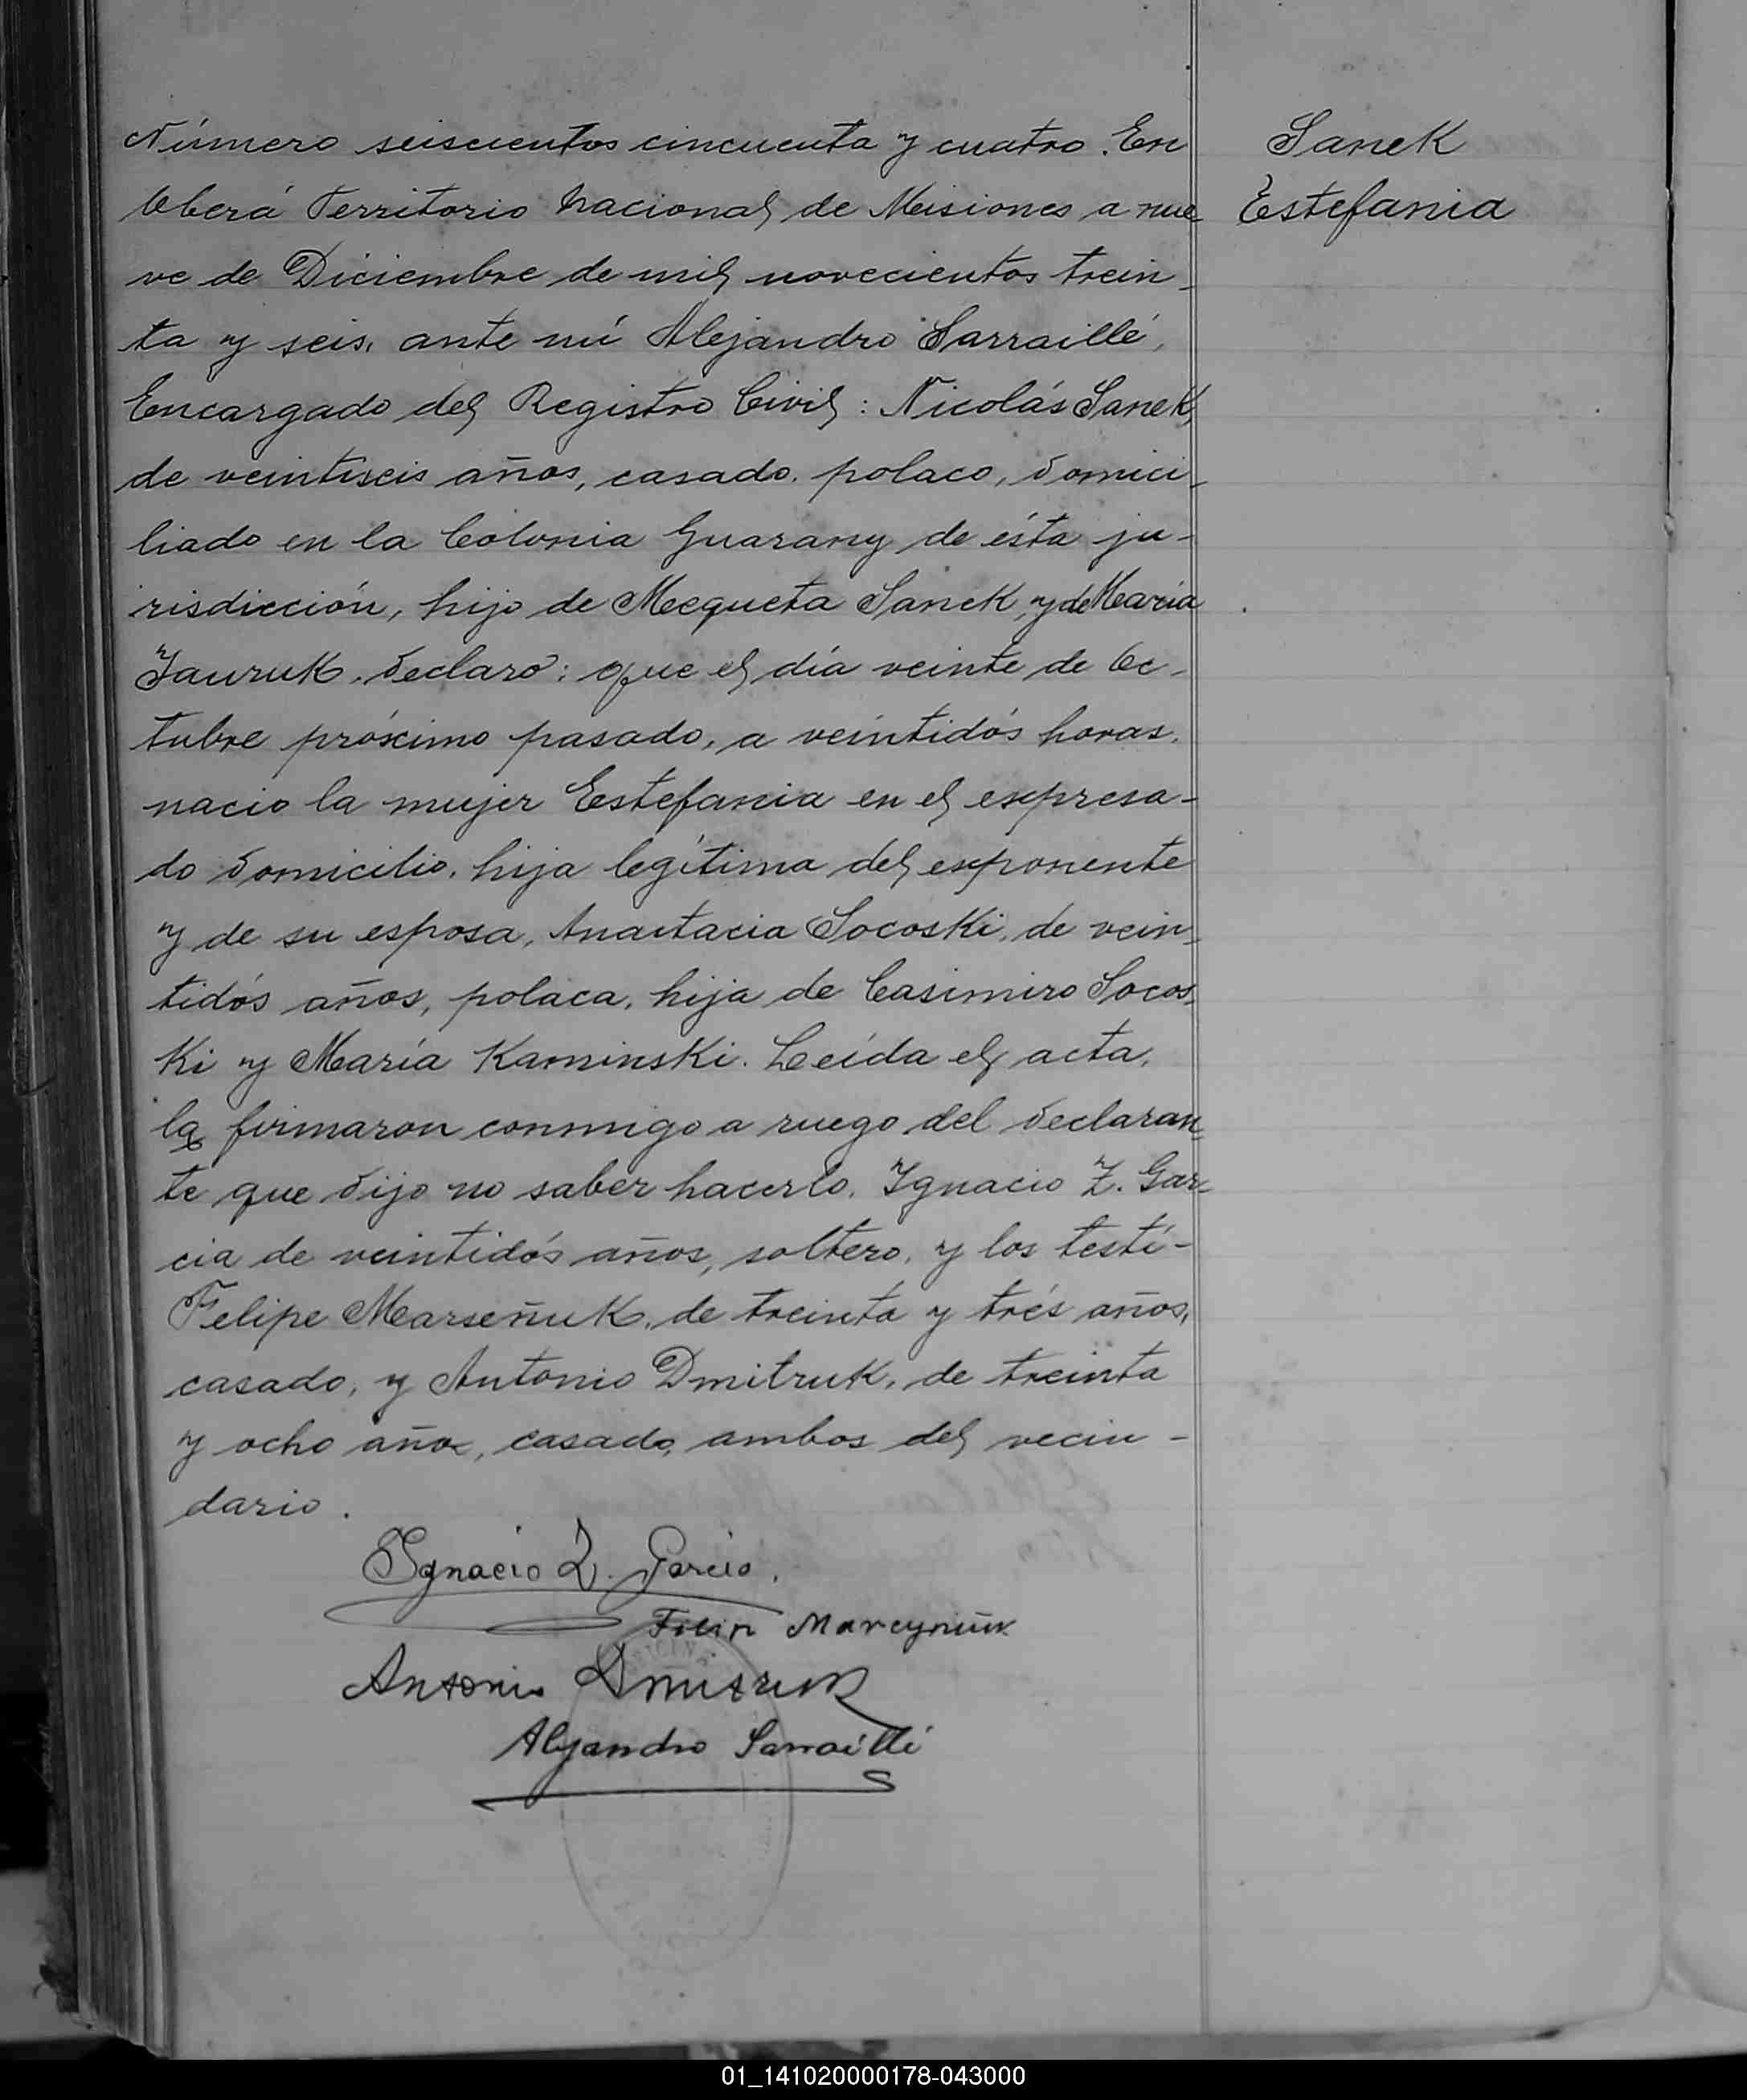 Número seiscientos cincuenta y cuatro. En
Oberá Territorio Nacional de Misiones a nue
ve de Diciembre de mil novecientos trein-
ta y seis, ante mí Alejandro Sarraillé,
Encargado del Registro Civil: Nicolás Sanek,
de veintiseis años, casado, polaco, domici-
liado en la Colonia Guarany de ésta ju-
risdicción, hijo de Mequeta Sanek, y de María
Jauruk, declaró: que el día veinte de Oc-
tubre próximo pasado, a veintidós horas,
nacio la mujer Estefania en el expresa-
do domicilio, hija legítima del exponente
y de su esposa, Anastacia Socoski, de vein-
tidós años, polaca, hija de Casimiro Socos-
ki y María Kaminski. Leída el acta,
la firmaron conmigo a ruego del declaran-
te que dijo no saber hacerlo, Ignacio Z. Gar-
cia de veintidós años, soltero, y los testi-
Felipe Marseñuk, de treinta y trés años,
casado, y Antonio Dmitruk, de treinta
y ocho años, casado, ambos del vecin-
dario.
Sanek
Estefania
Ignacio Z. Garcia.
Antonio Dmitruk
Alejandro Sarraillé
01_141020000178-043000